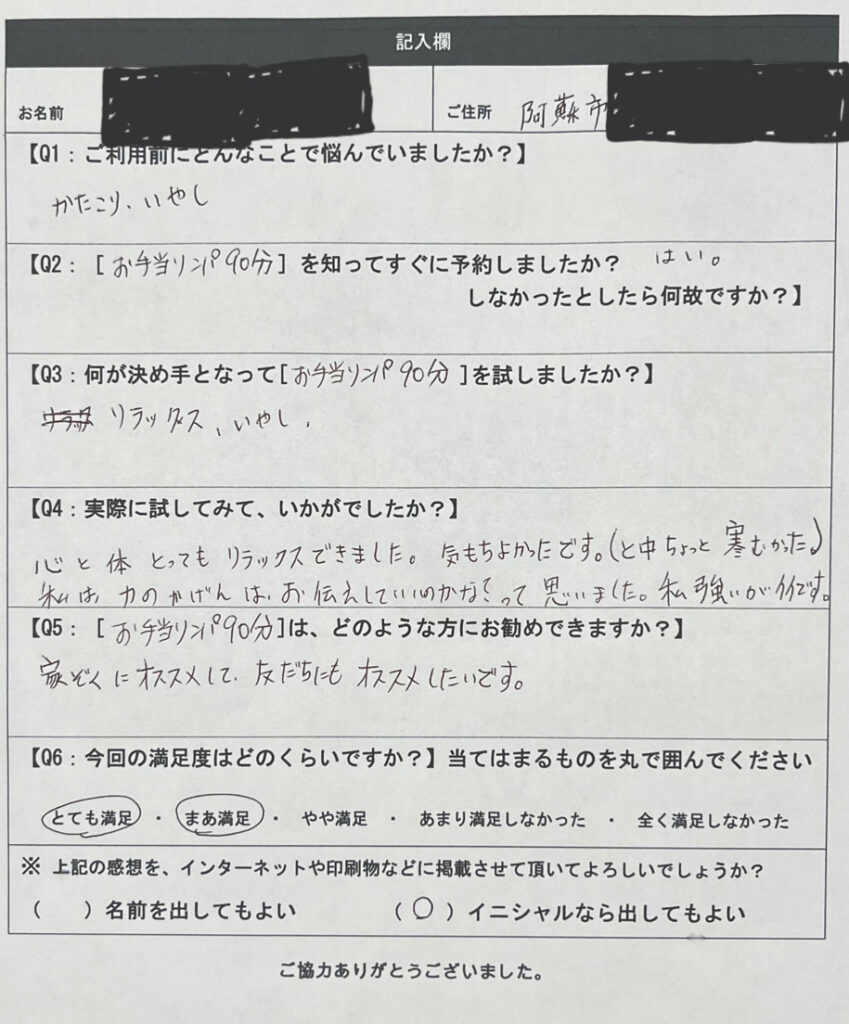 記入欄
お名前
ご住所 阿蘇市
【Q1：ご利用前にどんなことで悩んでいましたか？】
かたこり、いやし
【Q2：[お手当リンパ90分]を知ってすぐに予約しましたか？ はい。
しなかったとしたら何故ですか？】
【Q3：何が決め手となって[お手当リンパ90分]を試しましたか？】
リラックス、いやし、
【Q4：実際に試してみて、いかがでしたか？】
心と体とってもリラックスできました。気もちよかったです。(と中ちょっと寒むかった。)
私は力のかげんはお伝えしていいのかな？って思いました。私強いがイイです。
【Q5：[お手当リンパ90分]は、どのような方にお勧めできますか？】
家ぞくにオススメして、友だちにもオススメしたいです。
【Q6：今回の満足度はどのくらいですか？】当てはまるものを丸で囲んでください
とても満足 ・ まあ満足 ・ やや満足 ・ あまり満足しなかった ・ 全く満足しなかった
※ 上記の感想を、インターネットや印刷物などに掲載させて頂いてよろしいでしょうか？
(　　)名前を出してもよい (○)イニシャルなら出してもよい
ご協力ありがとうございました。